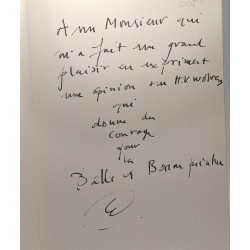 A un Monsieur qui
m'a fait un grand
plaisir en exprimant
une opinion sur
qui
donne du
courage
pour
la
Belle et Bonne peinture